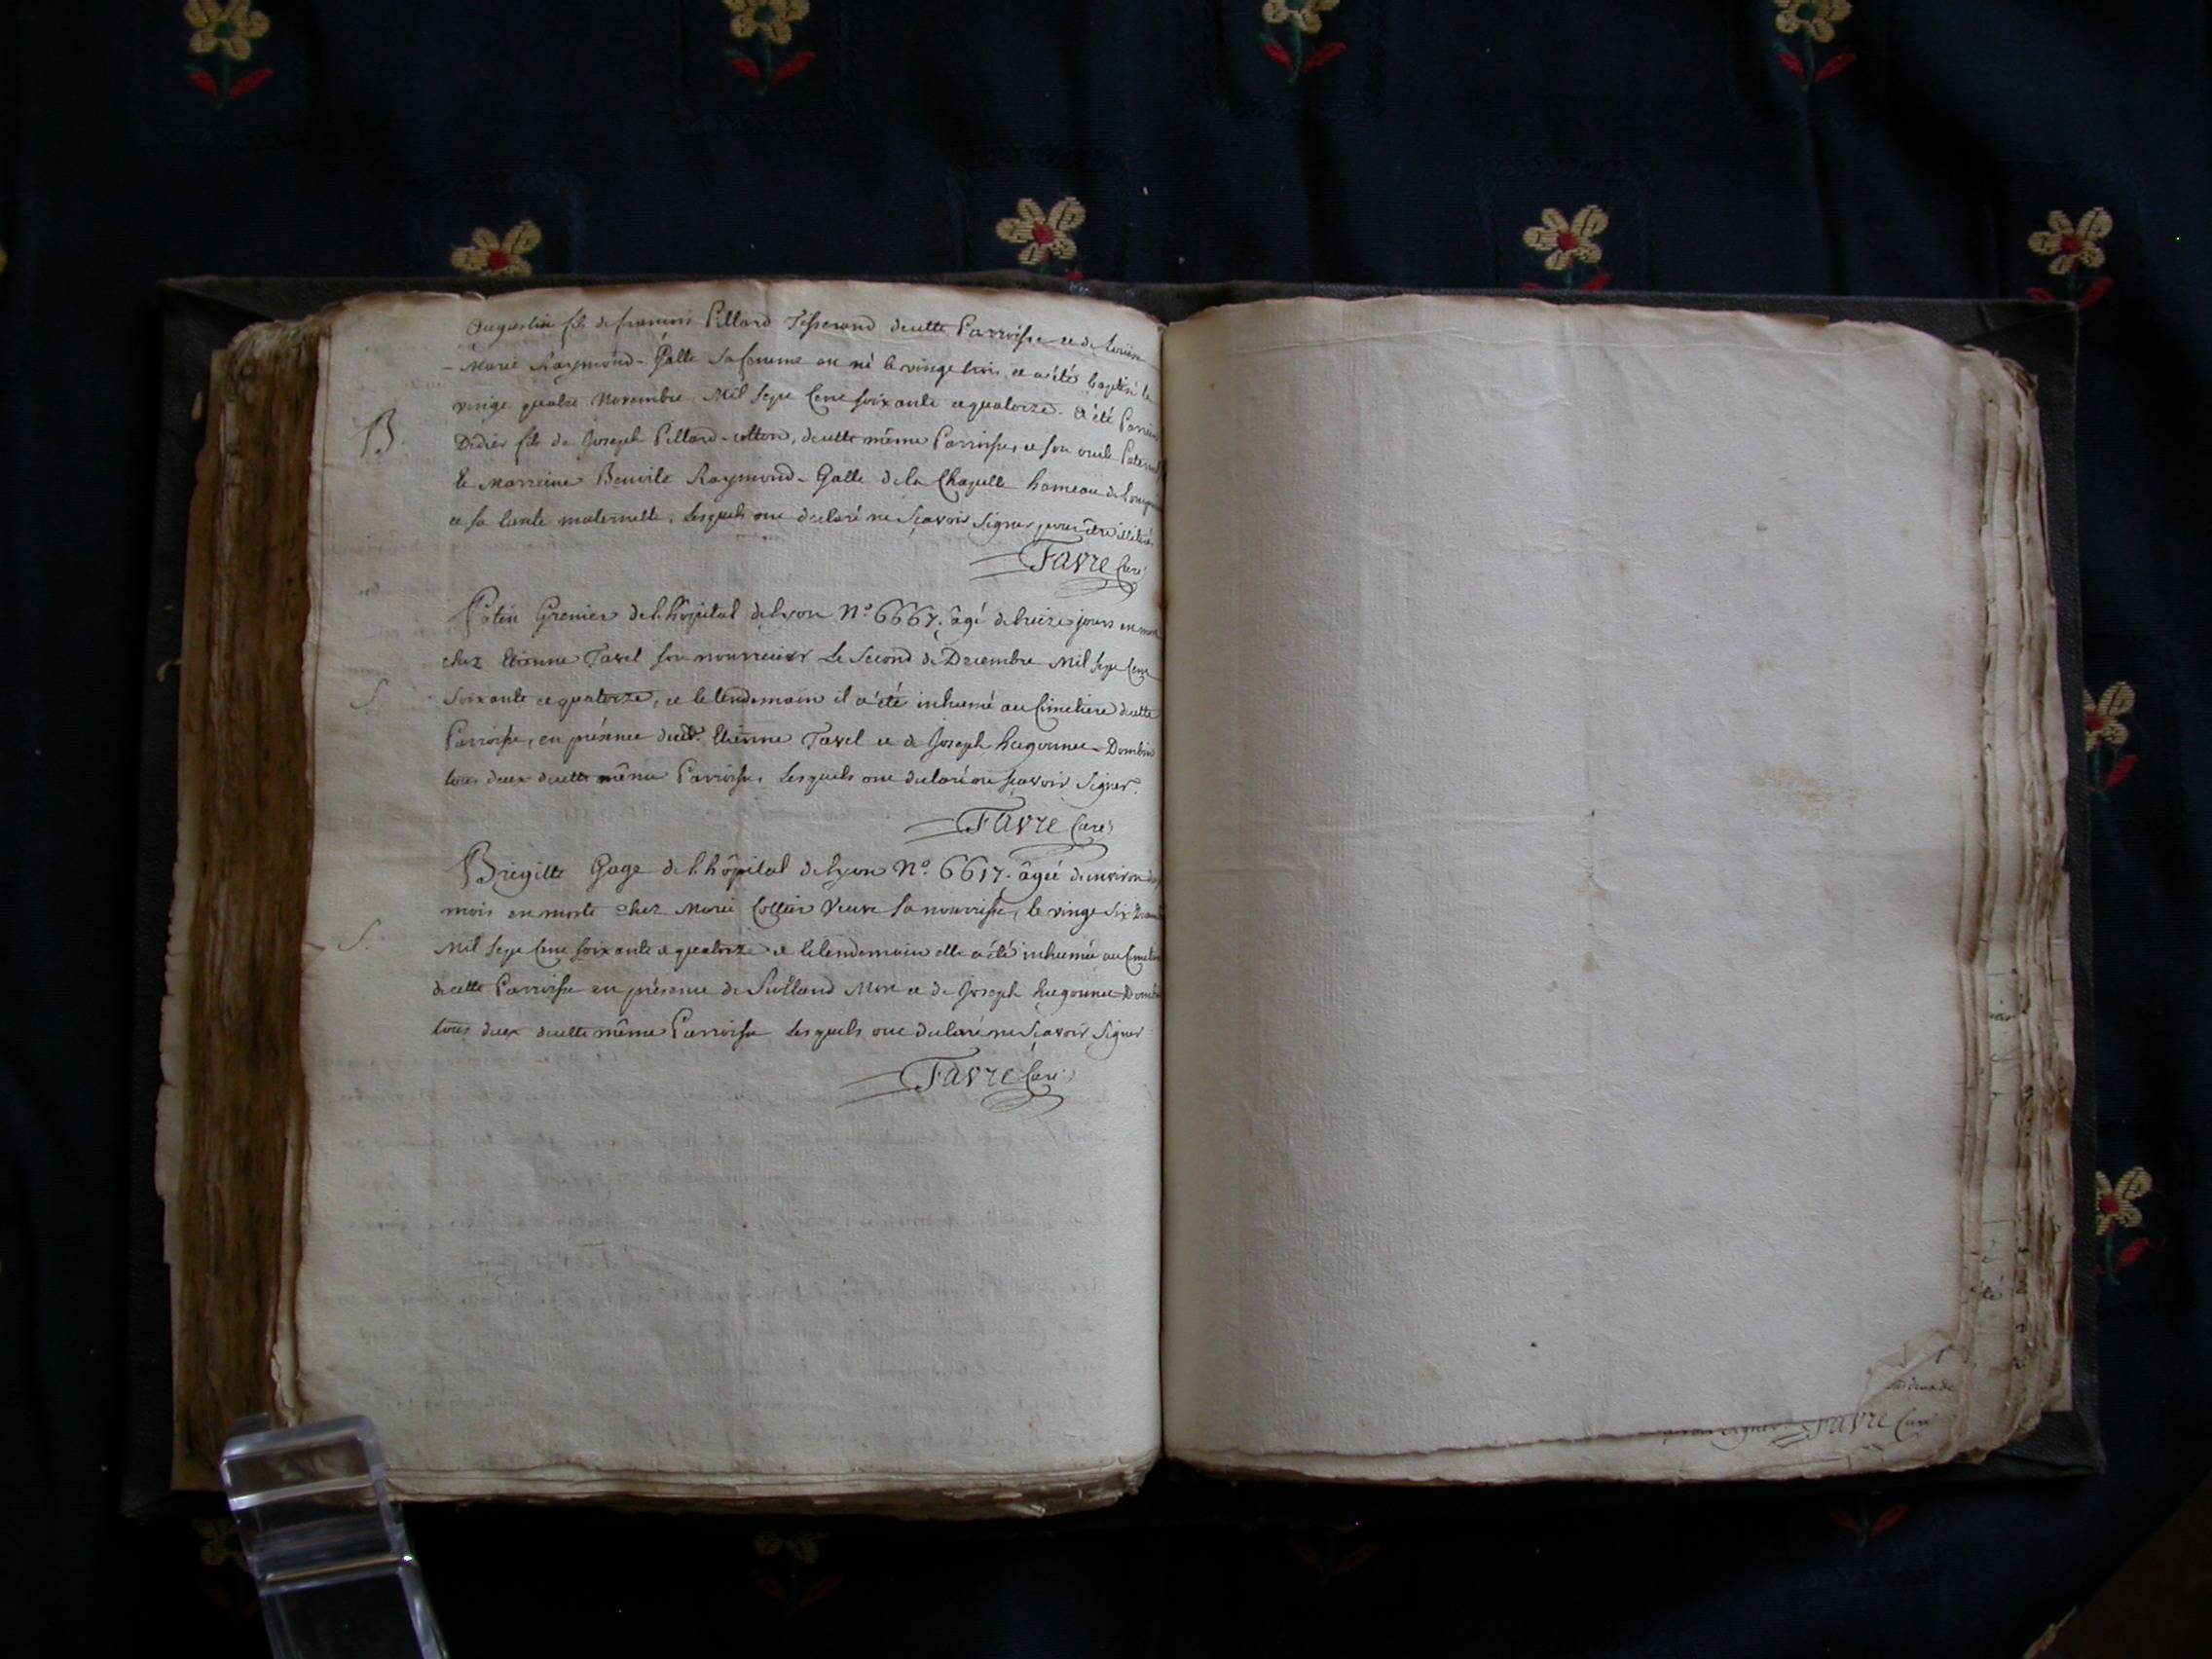 Augustin fils de françois Pillard Tisserand de cette Parroisse et de
B. - Marie Raymond-Galle sa femme est né le vingt trois et a été baptisé le
vingt quatre Novembre Mil Sept Cent soixante et quatorze. a été Parrein
Didier fils de Joseph Pillard-colton, de cette même Parroisse, et son oncle Paternel
et Marreine Benoite Raymond-Galle de la Chapelle hameau de
et sa tante maternelle, Lesquels ont declaré ne sçavoir signer pour être illitérés
Favre Curé
Potin Grenier de l'hôpital de Lyon N.º 6667. âgé de treize jours est mort
chez Etienne Tavel son nourricier Le Second de Decembre Mil Sept Cent
S. Soixante et quatorze, et le lendemain il a été inhumé au Cimetiere de cette
Parroisse, en présence dudt. Etienne Tavel et de Joseph hugonnet-Dombin
tous deux de cette même Parroisse, Lesquels ont declaré ne sçavoir Signer.
Favre Curé
Brigitte Gage de l'hôpital de Lyon N.º 6617. âgée d'environ
mois est morte chez Marie Veuve sa nourrisse, le vingt Six
S. Mil Sept Cent soixante et quatorze et le lendemain elle a été inhumée au Cimetiere
de cette Parroisse en présence de et de Joseph hugonnet-Dombin
tous deux de cette même Parroisse Lesquels ont declaré ne Sçavoir Signer
Favre Curé
Favre Curé